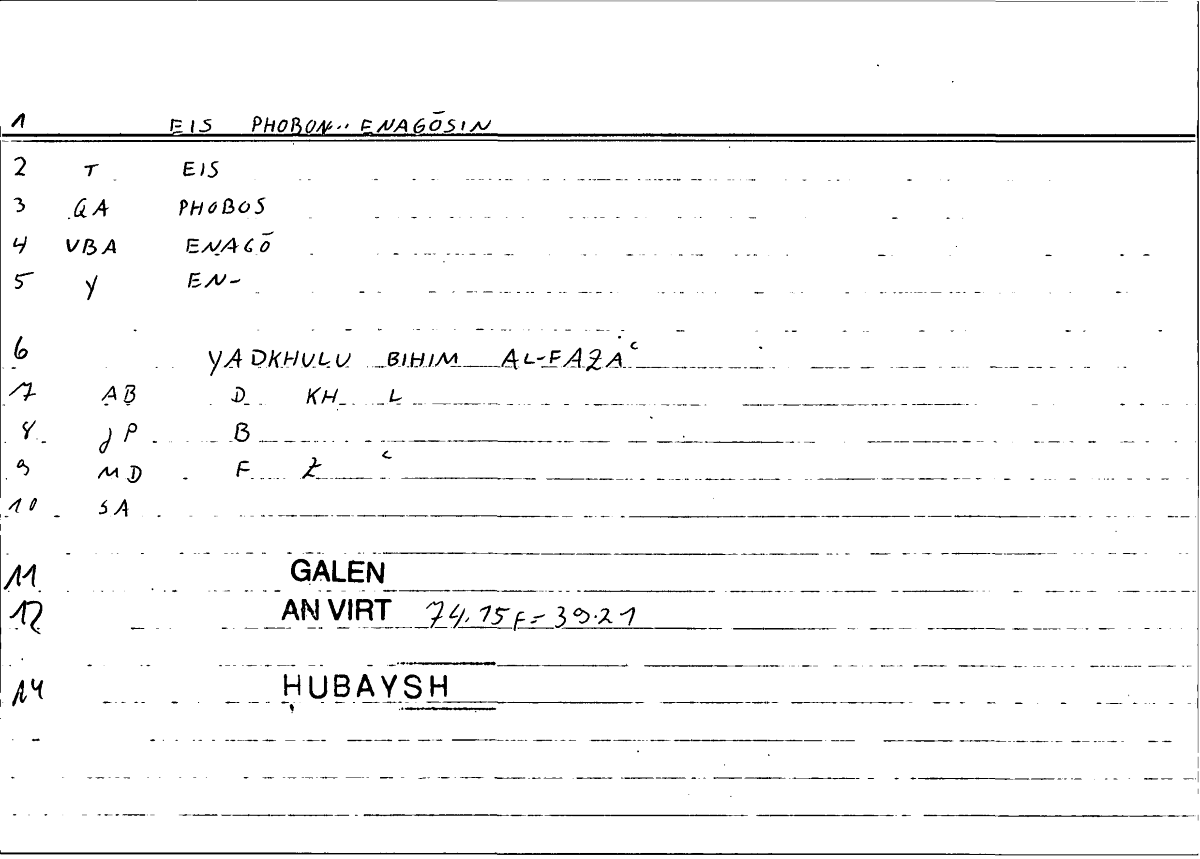 1 EIS PHOBON.. ENAGŌSIN
2 T EIS
3 QA PHOBOS
4 VBA ENAGŌ
5 Y EN-
6 YADKHULU BIHIM AL-FAZAʿ
7 AB D KH L
8 JP B
9 MD F Z ʿ
10 SA
11 GALEN
12 AN VIRT 74.15F=39.21
14 HUBAYSH